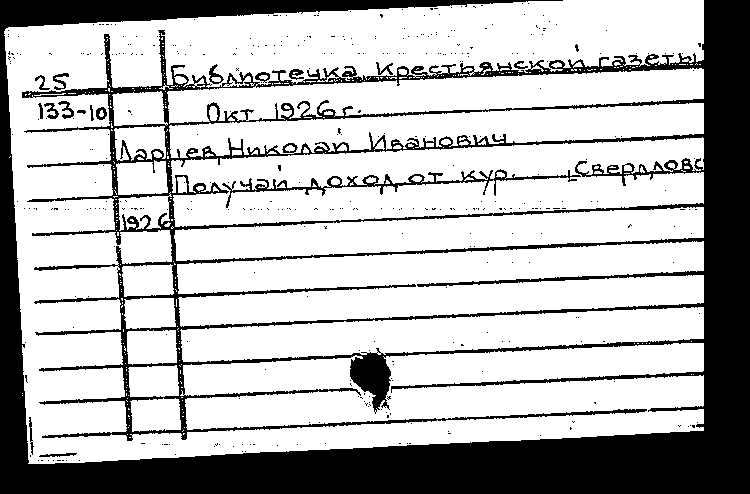 25 Библиотечка Крестьянской газеты
133-10 Окт. 1926 г.
Ларцев, Николай Иванович
Получай доход от кур. Свердловс
1926